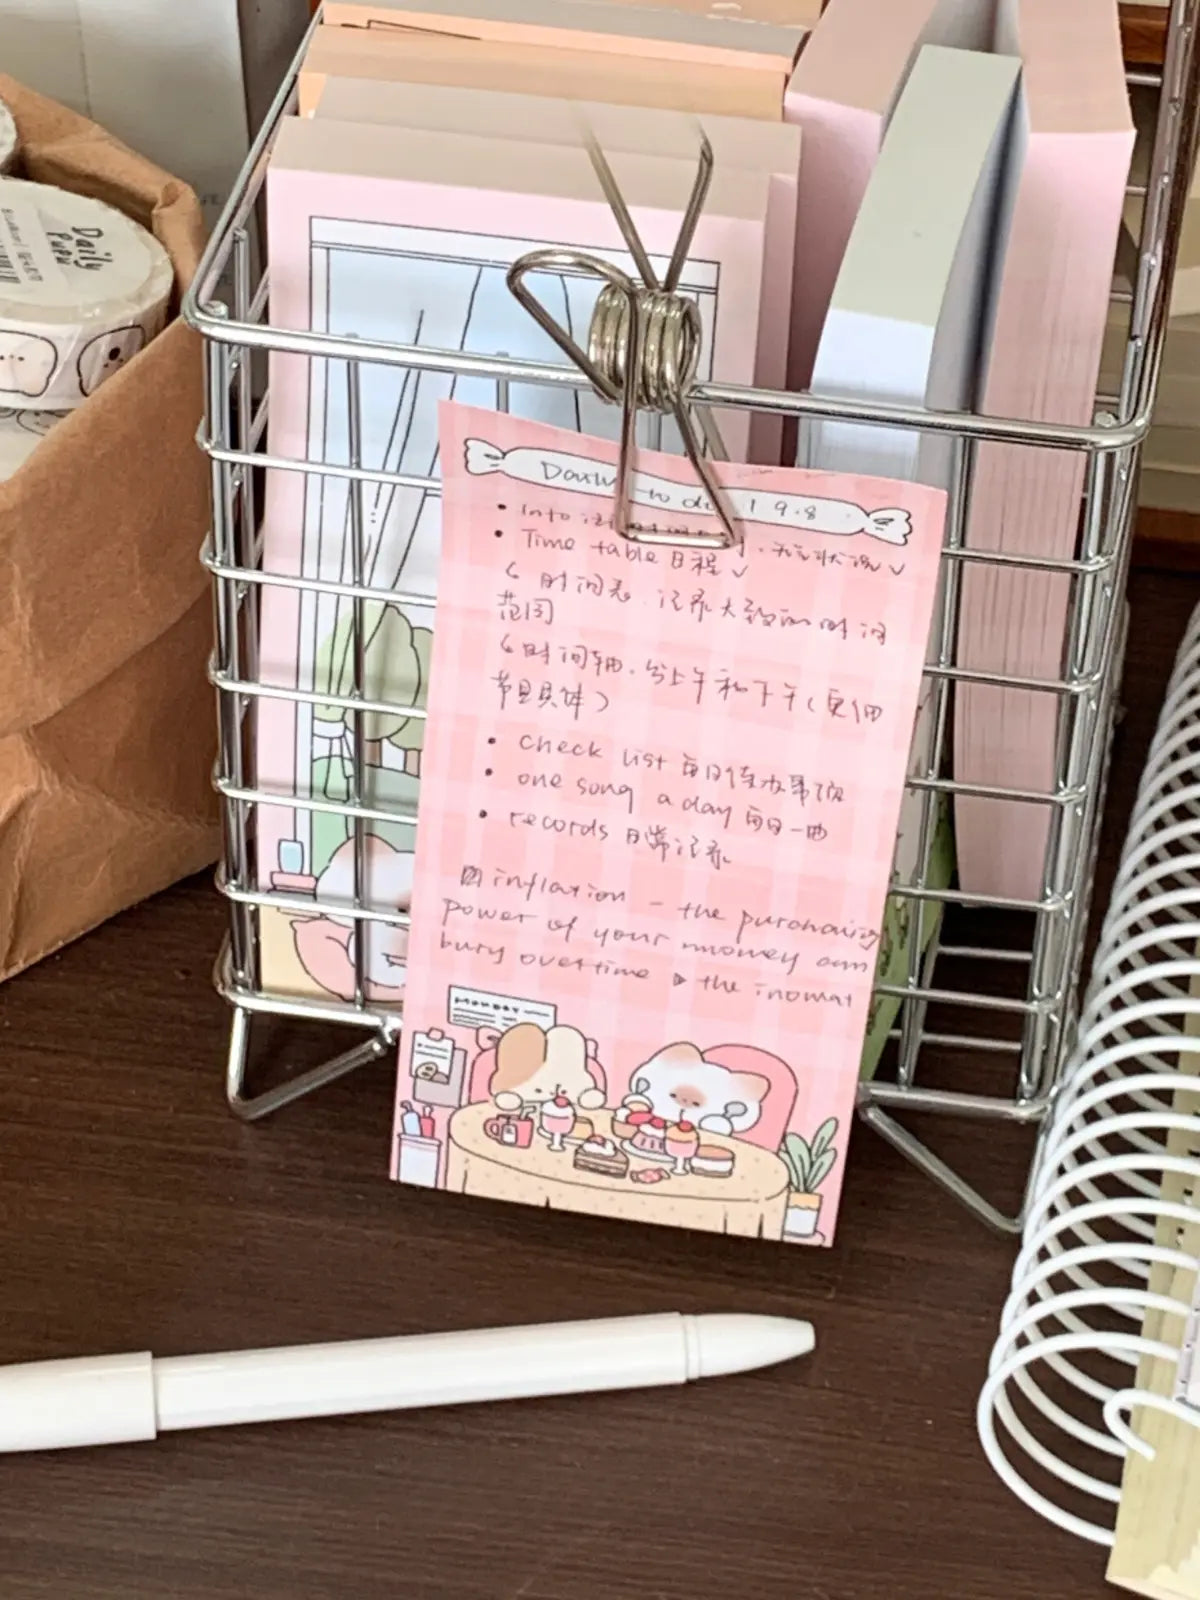 Daily
Pupu
Daily to do 1 9.8
• Into
• Time table 日程 ✓
时间表. 记录大致的时间
范围
时间轴. 分上午和下午(更细
节且具体)
• check list 每日待办事项
• one song a day 每日一曲
• records 日常记录
inflation - the purchasing
power of your money can
bury overtime ▷ the
Monday